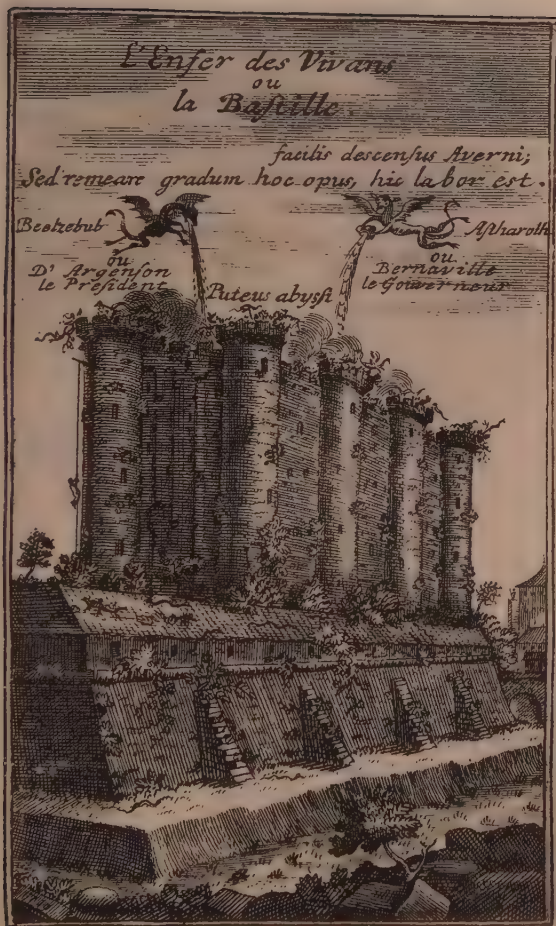 L'Enfer des Vivans
ou
la Bastille.
facilis descensus Averni;
Sed remeare gradum hoc opus, hic labor est.
Beelzebub
ou
D'Argenson
le President
Astaroth
ou
Bernaville
le Gouverneur
Puteus abyssi